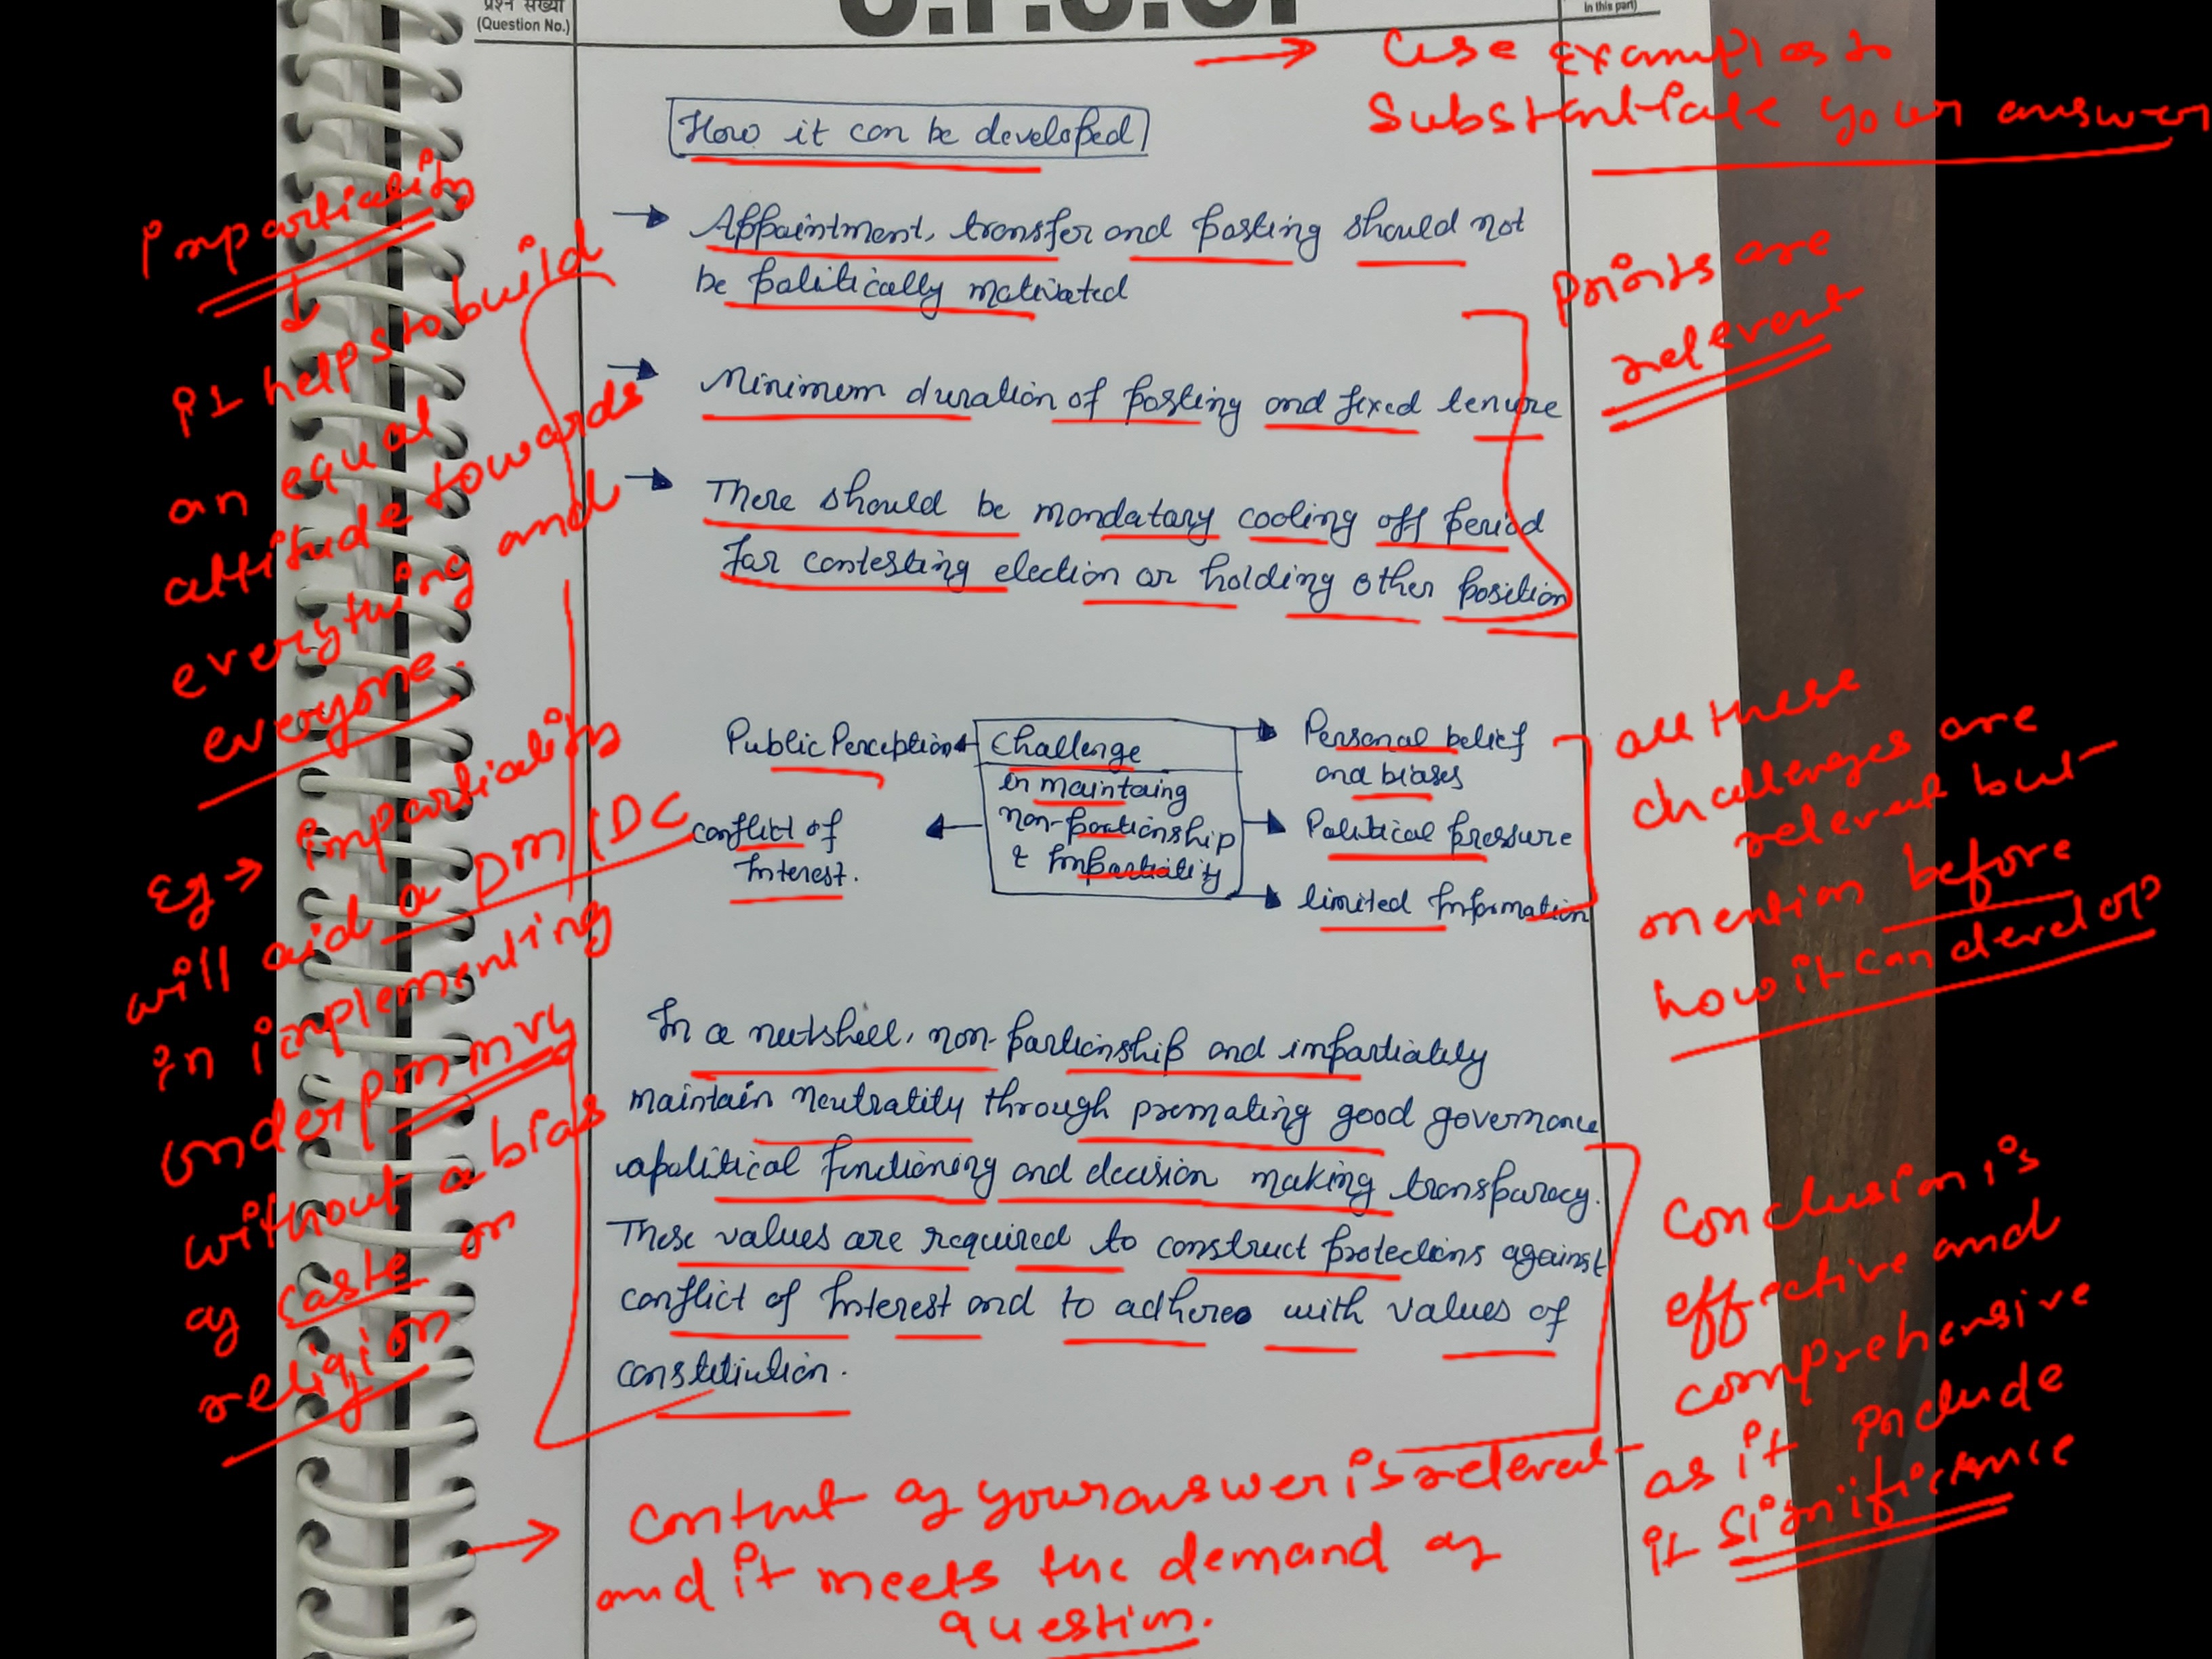 प्रश्न संख्या
(Question No.)
U.P.S.C.
in this part)
→ Use Examples to
Substantiate your answer
How it can be developed
→ Appointment, transfer and posting should not
be politically motivated
→ Minimum duration of posting and fixed tenure
→ There should be mandatary cooling off period
for contesting election or holding other position
Points are
relevent
Impartiality
↓
it helps to build
an equal
attitude towards
everything and
everyone.
Eg → impartiality
will aid a DM/DC
in implementing
under PMMVY
without a bias
of caste or
religion
Public Perception
Conflict of
Interest.
Challenge
in maintaing
non-partionship
& Impartiality
Personal belief
and biases
Political pressure
limited Information
all these
challenges are
relevent but
mention before
how it can develop
In a nutshell, non-partionship and impartiality
maintain neutrality through promoting good governance
apolitical functioning and decision making transparacy.
These values are required to construct protections against
conflict of Interest and to adhere with values of
constitution.
Conclusion is
effective and
comprehensive
as it include
it significance
→ Content of your answer is relevent
and it meets the demand of
question.